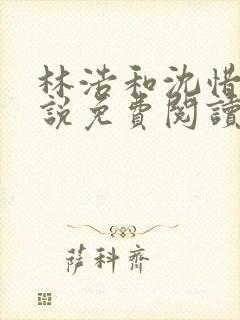 林浩和沈惜
說免費閱讀
萨科齊